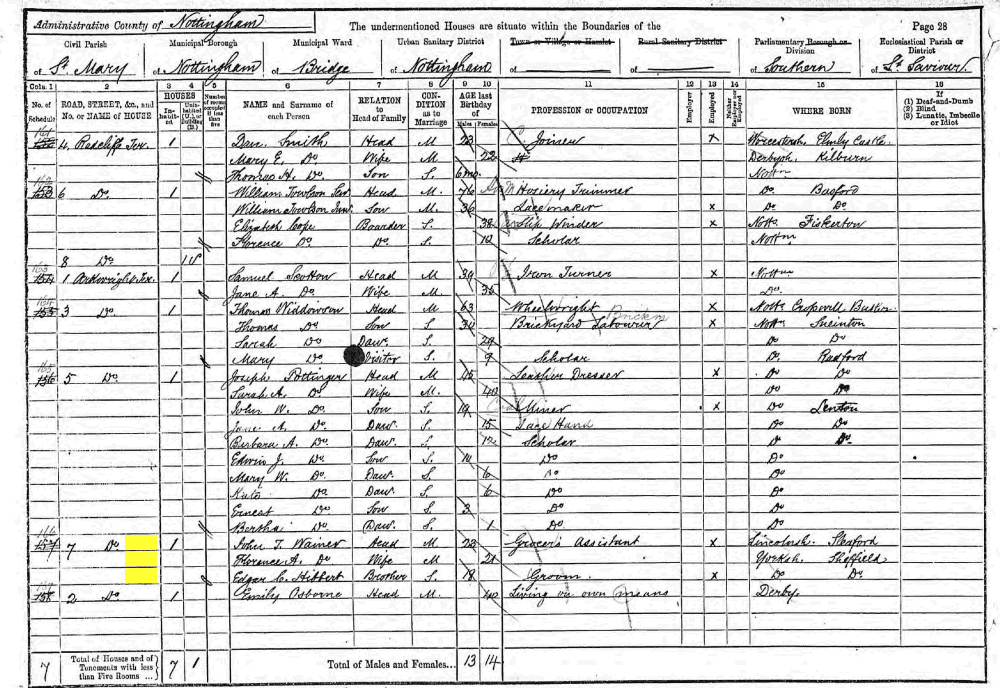 Administrative County of Nottingham The undermentioned Houses are situate within the Boundaries of the Page 28
Civil Parish Municipal Borough Municipal Ward Urban Sanitary District Town or Village or Hamlet Rural Sanitary District Parliamentary Borough or Division Ecclesiastical Parish or District
of St. Mary of Nottingham of Bridge of Nottingham of of of Southern of St. Saviour
Cols. 1 2 3 4 5 6 7 8 9 10 11 12 13 14 15 16
No. of Schedule ROAD, STREET, &c., and No. or NAME of HOUSE HOUSES Inhabited Uninhabited (U.) or Building (B.) Number of rooms occupied if less than five NAME and Surname of each Person RELATION to Head of Family CONDITION as to Marriage AGE last Birthday of Males Females PROFESSION or OCCUPATION Employer Employed Neither Employer nor Employed WHERE BORN If (1) Deaf-and-Dumb (2) Blind (3) Lunatic, Imbecile or Idiot
161 152 4, Radcliff Ter. 1 Dav. Smith Head M 23 Joiner X Worcestersh. Elmly Castle
Mary E. Do Wife M 22 Derbysh. Kilburn
Thomas H. Do Son S. 6mo. Nottm
162 153 6 Do. 1 William Towlson Sen. Head M. 76 Hosiery Trimmer Do. Basford
William Towlson Jun. Son M. 36 Lace maker X Do Do.
Elizabeth Cope Boarder S. 38 Slip Winder X Notts Fiskerton
Florence Do Do. S. 10 Scholar Nottm
8 Do 1 U
163 154 1 Arkwright Ter. 1 Samuel Scotton Head M 39 Iron Turner X Nottm
Jane A. Do Wife M. 36 Do.
164 155 3 Do. 1 Thomas Widdowson Head M 63 Wheelwright X Notts Cropwell Butler
Thomas Do Son S. 30 Brickyard Labourer X Notts Sneinton
Sarah Do Daur. S. 29 Do Do
Mary Do Visitor S. 9 Scholar Do. Radford
165 156 5 Do 1 Joseph Pottinger Head M 45 Leather Dresser X Do Do
Sarah A. Do Wife M. 40 Do Do
John W. Do Son S. 19 Coal Miner X Do Lenton
Jane A. Do. Daur. S. 15 Lace Hand Do Do
Barbara A. Do Daur. S. 12 Scholar Do Do
Edwin J. Do Son S 10 Do Do
Mary W. Do. Daur. S. 6 Do Do
Kate Do Daur. S. 6 Do Do
Ernest Do Son S 3 Do Do
Bertha Do Daur. S. 1 Do Do
166 157 7 Do 1 John T. Wainer Head M 23 Grocers Assistant X Lincolnsh. Sleaford
Florence A. Do Wife M 21 Yorksh. Sheffield
Edgar C. Hibbert Brother S. 18 Groom X Do Do.
158 2 Do 1 Emily Osborne Head M. 40 Living on own means Derby
7 Total of Houses and of Tenements with less than Five Rooms ... 7 1 Total of Males and Females... 13 14